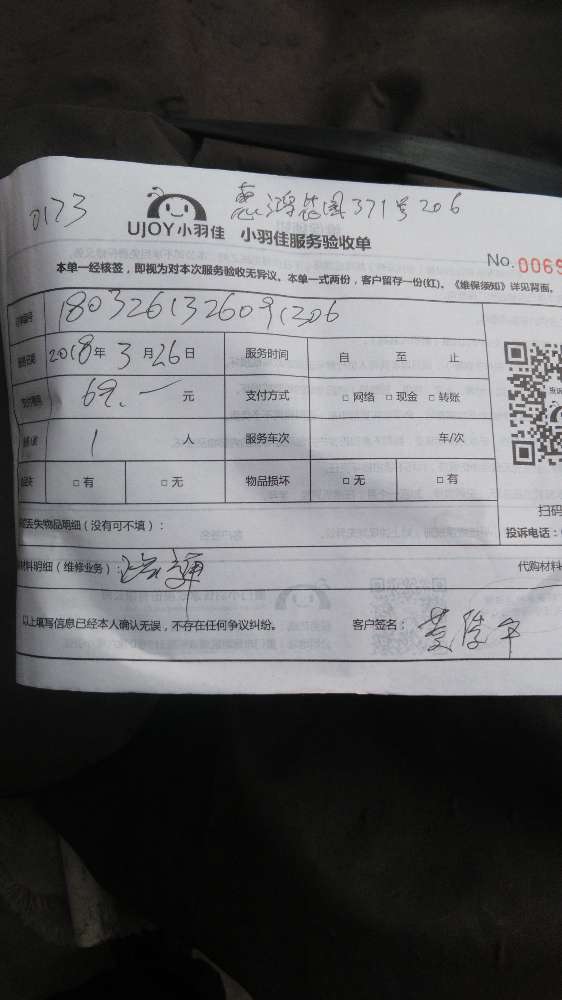 0173
花园371号206
UJOY小羽佳 小羽佳服务验收单
No.0069
本单一经核签，即视为对本次服务验收无异议、本单一式两份，客户留存一份(红)。《维保须知》详见背面。
1803261326091306
2018年3月26日 服务时间 自 至 止
69.一元 支付方式 □网络 □现金 □转账
1 人 服务车次 车/次
□有 □无 物品损坏 □无 □有
丢失物品明细（没有可不填）：
扫码
投诉电话：
材料明细（维修业务）： 代购材料
以上填写信息已经本人确认无误，不存在任何争议纠纷。 客户签名：